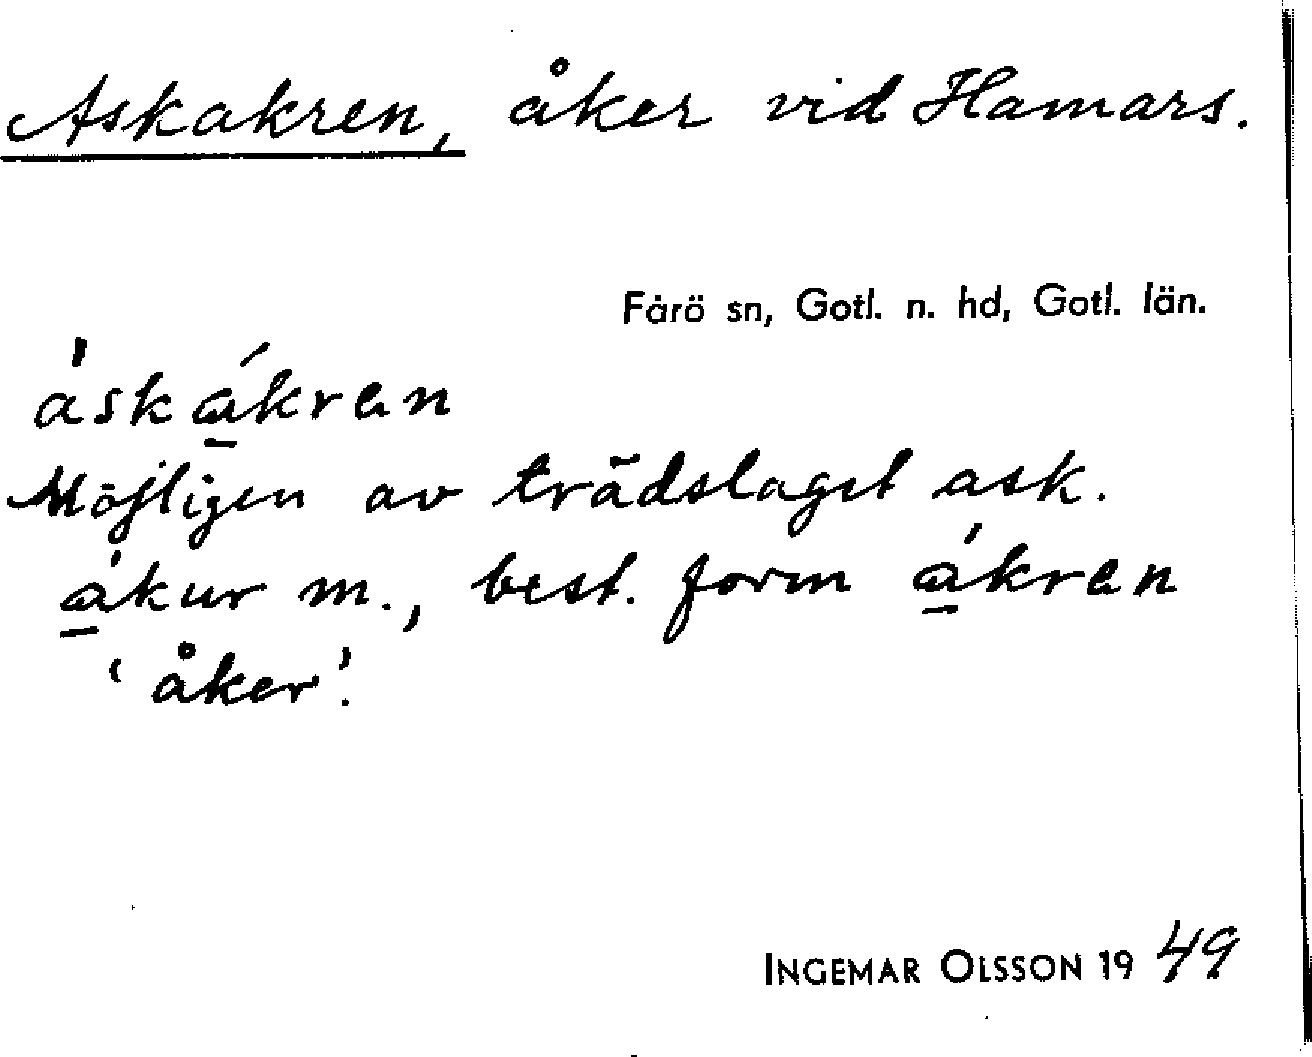 Askakren, åker vid Hamars.
Fårö sn, Gotl. n. hd, Gotl. län.
àskákrɐn
Möjligen av trädslaget ask.
ákur m., best. form ákrɐn
‘åker’.
INGEMAR OLSSON 1949